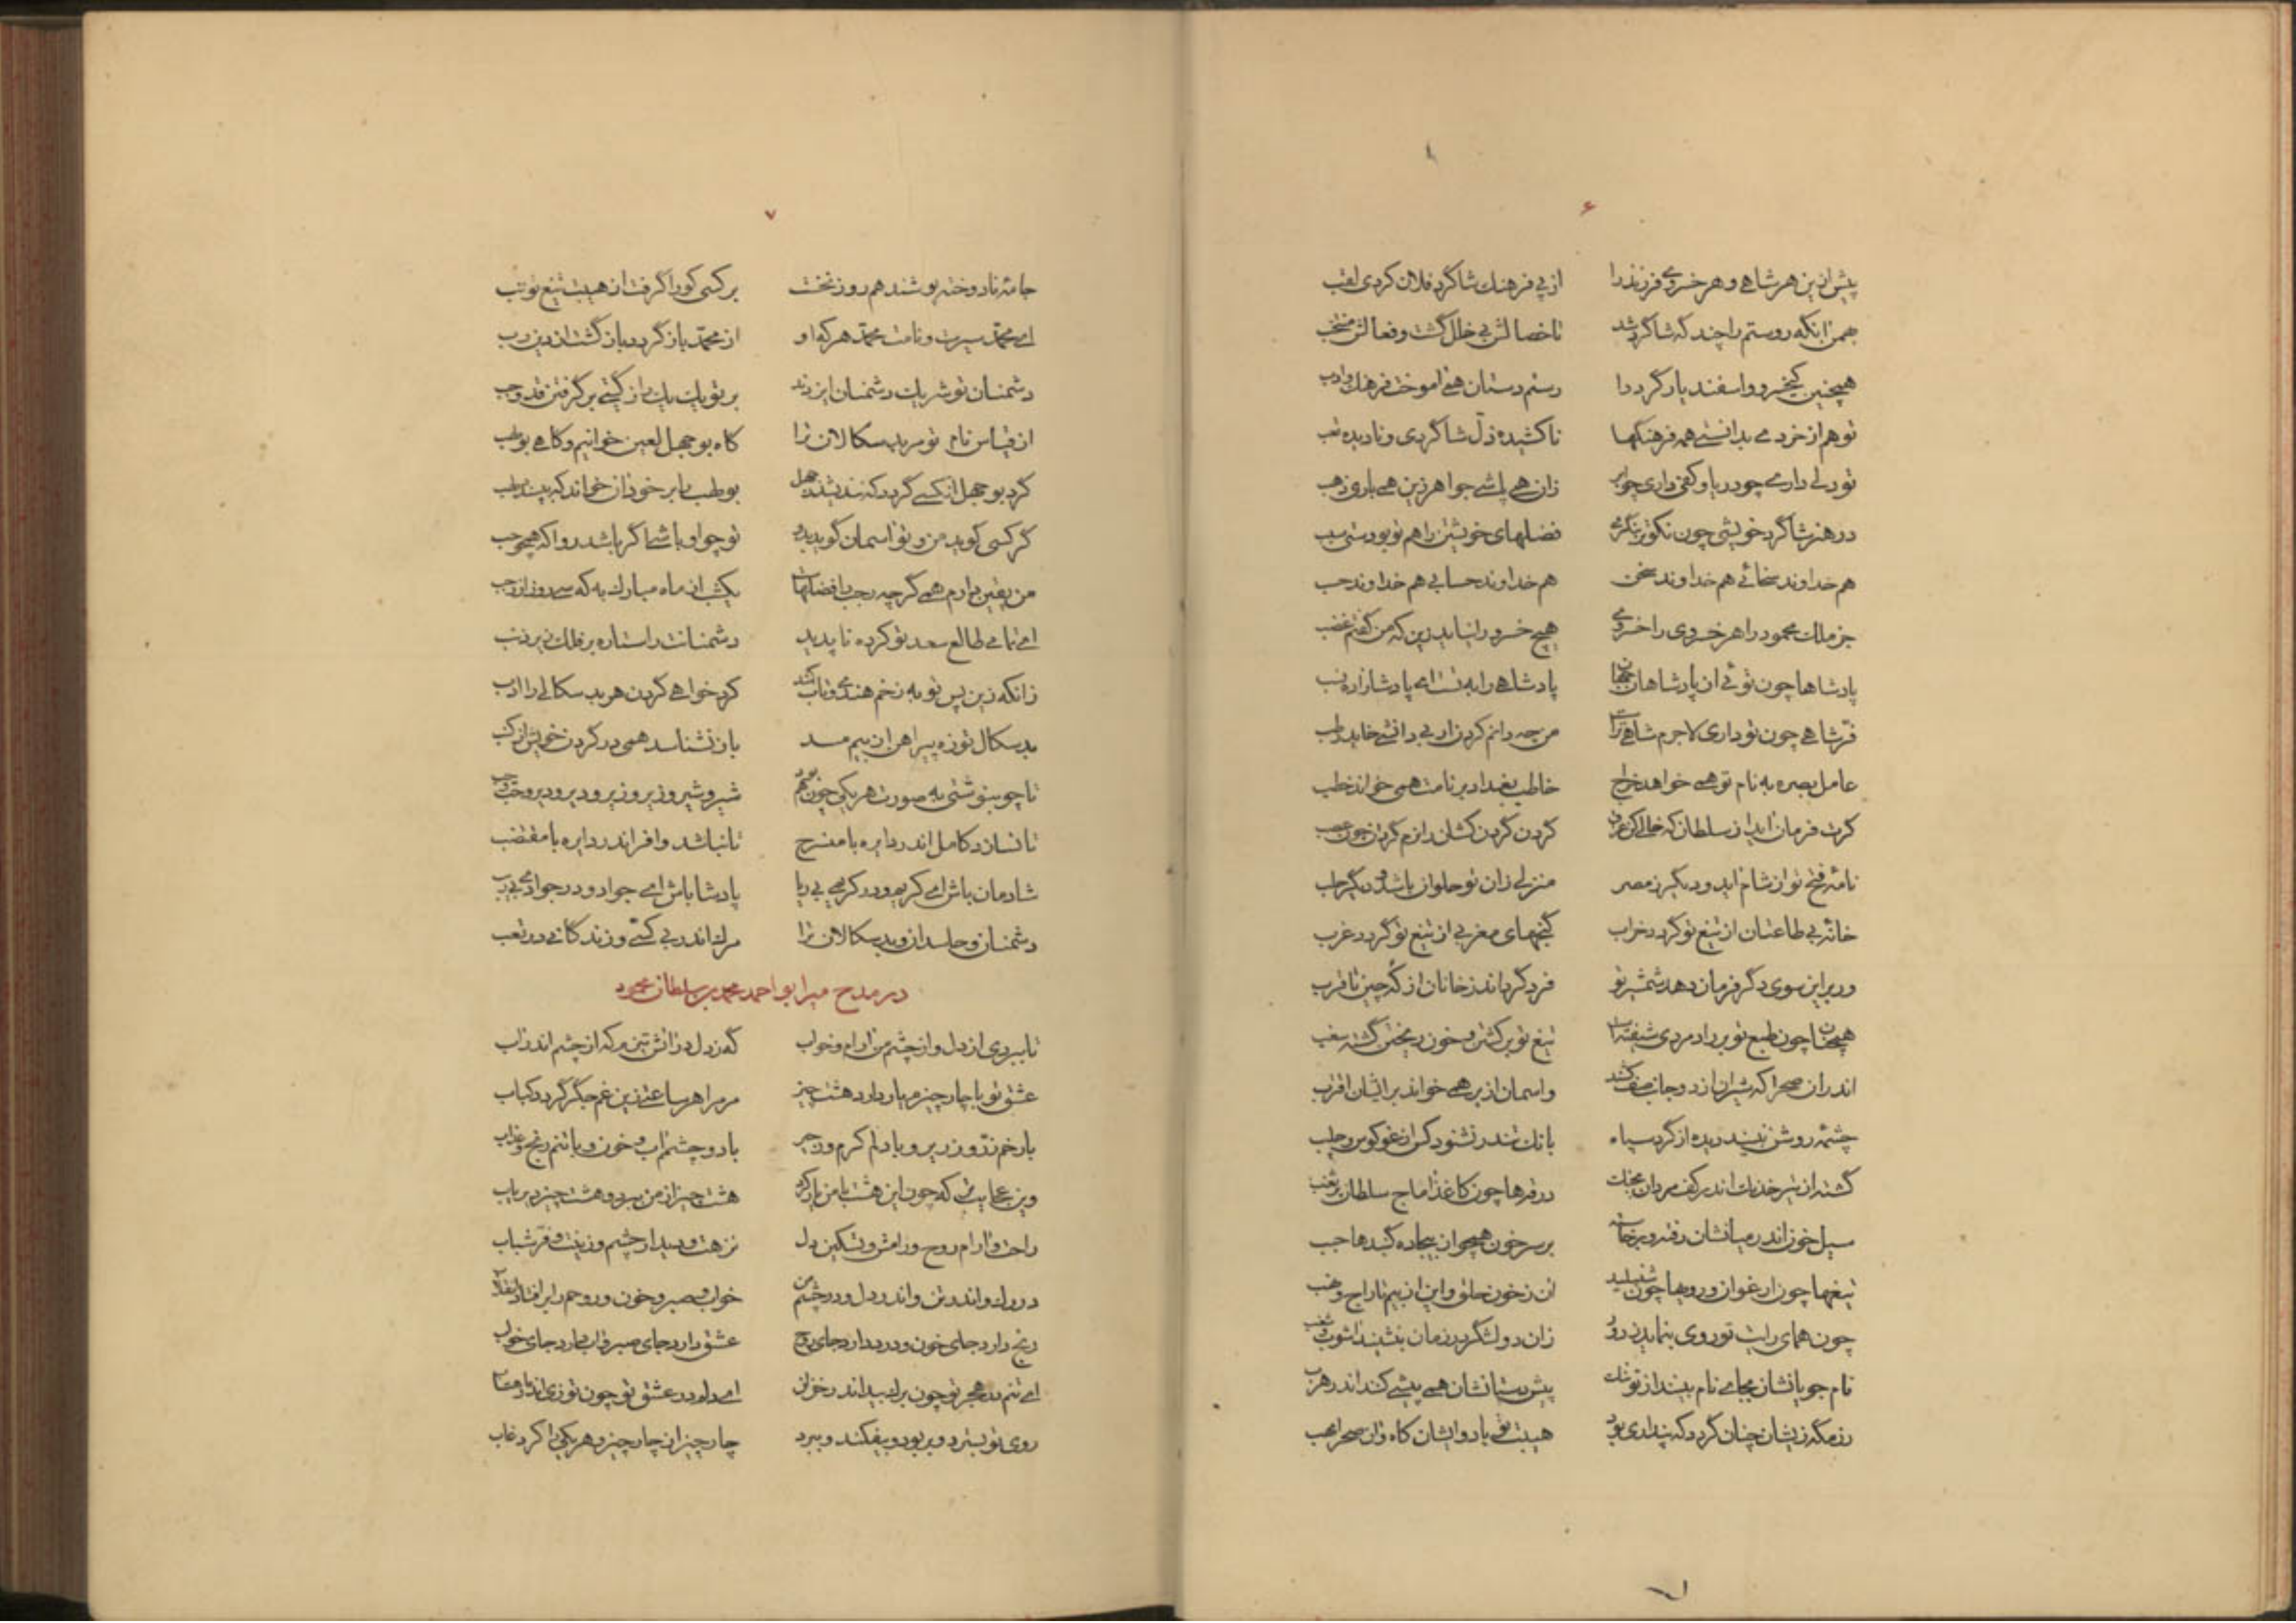 ۶
پیش ازین هر شاهی و هر خسروی فرزند را از پی فرهنک شاکرد فلان کردی لقب
همن آنکه روستم را چند که شاکرد شد تا خصالش بی خلل کشت و فعالش منتخب
همچنین کیخسرو و اسفندیار کرد را رستم دستان همی آموخت فرهنک و ادب
تو هم از خردی بدانستی همه فرهنکها ناکشیده ذل شاکردی و نادیده تعب
تو دلی داری چو دریا و کفی داری چو ابر زان همی پاشی جواهر زین همی باری ذهب
در هنر شاکرد خویشی چون نکوتر بنکری فضلهای خویشتن را هم تو بودستی سبب
هم خداوند سخائی هم خداوند سخن هم خداوند حسابی هم خداوند حسب
جز ملک محمود را هر خسروی را خسروی هیچ خسرو را نیاید زین که من کفتم غضب
پادشاها چون توئی از پادشاهان جهان پادشاهی را بدست ای پادشازاده نسب
فر شاهی چون تو داری لاجرم شاهی تراست من چه دانم کردن ار بی دانشی خاید رطب
عامل بصره به نام تو همی خواهد خراج خاطب بغداد بر نامت همی خواند خطب
کرت فرمان آید از سلطان که خالی کن عراق کردن کردن کشان را نرم کردن چون عصب
نامه فتح تو از شام آید و دیکر ز مصر منزلی زان تو حلوان باشد و دیکر حلب
خانه بی طاعتان از تیغ تو کردد خراب کنجهای مغربی از تیغ تو کردد عزب
ور بر این سوی دکر فرمان دهد شمشیر تو فرد کرداند ز خانان از که چین تا قرب
همچنان چون طبع تو بر رادمردی شیفته است تیغ تو بر کشتن و خون ریختن کشته سغب
اندران صحرا که شیران از دو جانب صف کشند واسمان از بر همی خواند بر ایشان اقترب
چشمه روشن نبیند دیده از کرد سپاه بانک تندر نشنود کس از غو کوس و جلب
کشته از تیر خدنک اندر کف مردان بجنک درقه ها چون کاغذ آماج سلطان پر ثقب
سیل خون اندر میانشان رفته و برخاسته بر سر خون همچو از بیجاده کنبدها حبب
تیغها چون ارغوان و رویها چون شنبلید آن ز خون حلق و این از بیم تاراج و نهب
چون همای رایت تو روی بنماید ز دور زان دو لشکر در زمان بنشیند آشوب و شغب
نام جویانشان بجای نام بینند از تو ننک پیش دستانشان همی پیشی کنند اندر هرب
رزمکه زیشان چنان کردد که پنداری بود هیبت تو باد و ایشان کاه و آن صحرا مهب
۷
جامه نادوخته پوشند هم روز نخست بر کسی کورا کرفت از هیبت تیغ تو تب
ای محمد سیرت و نامت محمد هر که او از محمد باز کردد باز کشت از دین رب
دشمنان تو شریک دشمنان ایزدند بر تو یک یک را ز کیتی بر کرفتن قد وجب
از قیاس نام تو مر بد سکالان ترا کاه بوجهل لعین خوانیم و کاهی بولهب
کرد بوجهل آن کسی کردد که نندیشد ز جهل بولهب را بر خود آن خواند که بپسندد لهب
کر کسی کوید من و تو آسمان کوید بدو تو چو او باشی اکر باشد روا که همچو حب
من یقین دارم همی کرچه رجب را فضلهاست یکشب از ماه مبارک به که سی روز از رجب
ای تمامی طالع سعد تو کرده ناپدید دشمنانت را ستاره بر فلک زیر ذنب
زانکه زین پس تو به زخم هندوی و تاب کمند کرد خواهی کردن هر بد سکالی را ادب
بد سکال تو زه پیراهن از بیم مسد باز نشناسد همی در کردن خویش از کنب
تا چو بنوشتی به صورت هر یکی چون هم بود شیر و شیر و زیر و زیر و دیر و دیر و حب و حب
تا نسازد کامل اندر دایره با منسرح تا نباشد وافر اندر دایره با مقتضب
شادمان باش ای کریم و در کریمی بی ریا پادشا باش ای جواد و در جوادی بی ریب
دشمنان و حاسدان و بد سکالان ترا مرک اندر بی کسی و زندکانی در تعب
در مدح میر ابو احمد محمد بن سلطان محمود
تا ببردی از دل و از چشم من آرام و خواب که ز دل در آتش تیزم که از چشم اندر آب
عشق تو با چار چیزم یار دارد هشت چیز مر مرا هر ساعتی زین غم جکر کردد کباب
با رخم زر و زریر و با دلم کرم و زحیر با دو چشمم آب و خون و با تنم رنج و عذاب
وین عجایب تر که چون این هشت با من یار کرد هشت چیز از من ببرد و هشت چیز دیریاب
راحت و آرام روح و رامش و تسکین دل نزهت و دیدار چشم و زینت و فر شباب
در دل و اندر تن و اندر دل و در چشم من خواب و صبر و خون و روحم را بر افتاد انقلاب
رنج دارد جای خون و درد دارد جای روح عشق دارد جای صبر و آب دارد جای خواب
ای تنم در هجر تو چون برک بید اندر خزان ای دلم در عشق تو چون توزی اندر ماهتاب
روی تو بسترد و بربود و بیفکند و ببرد چار چیز از چار چیز و هر یکی را کرد غاب